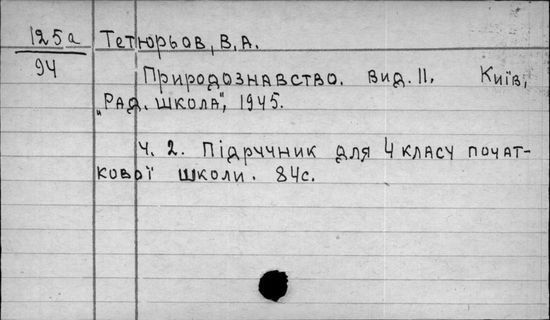 125а
94
Тетюрьов, В, А.
Природознавство. Вид. II. Київ,
"Рад. школа", 1945.
Ч. 2. Підручник для 4 класу почат-
кової школи. 84с.